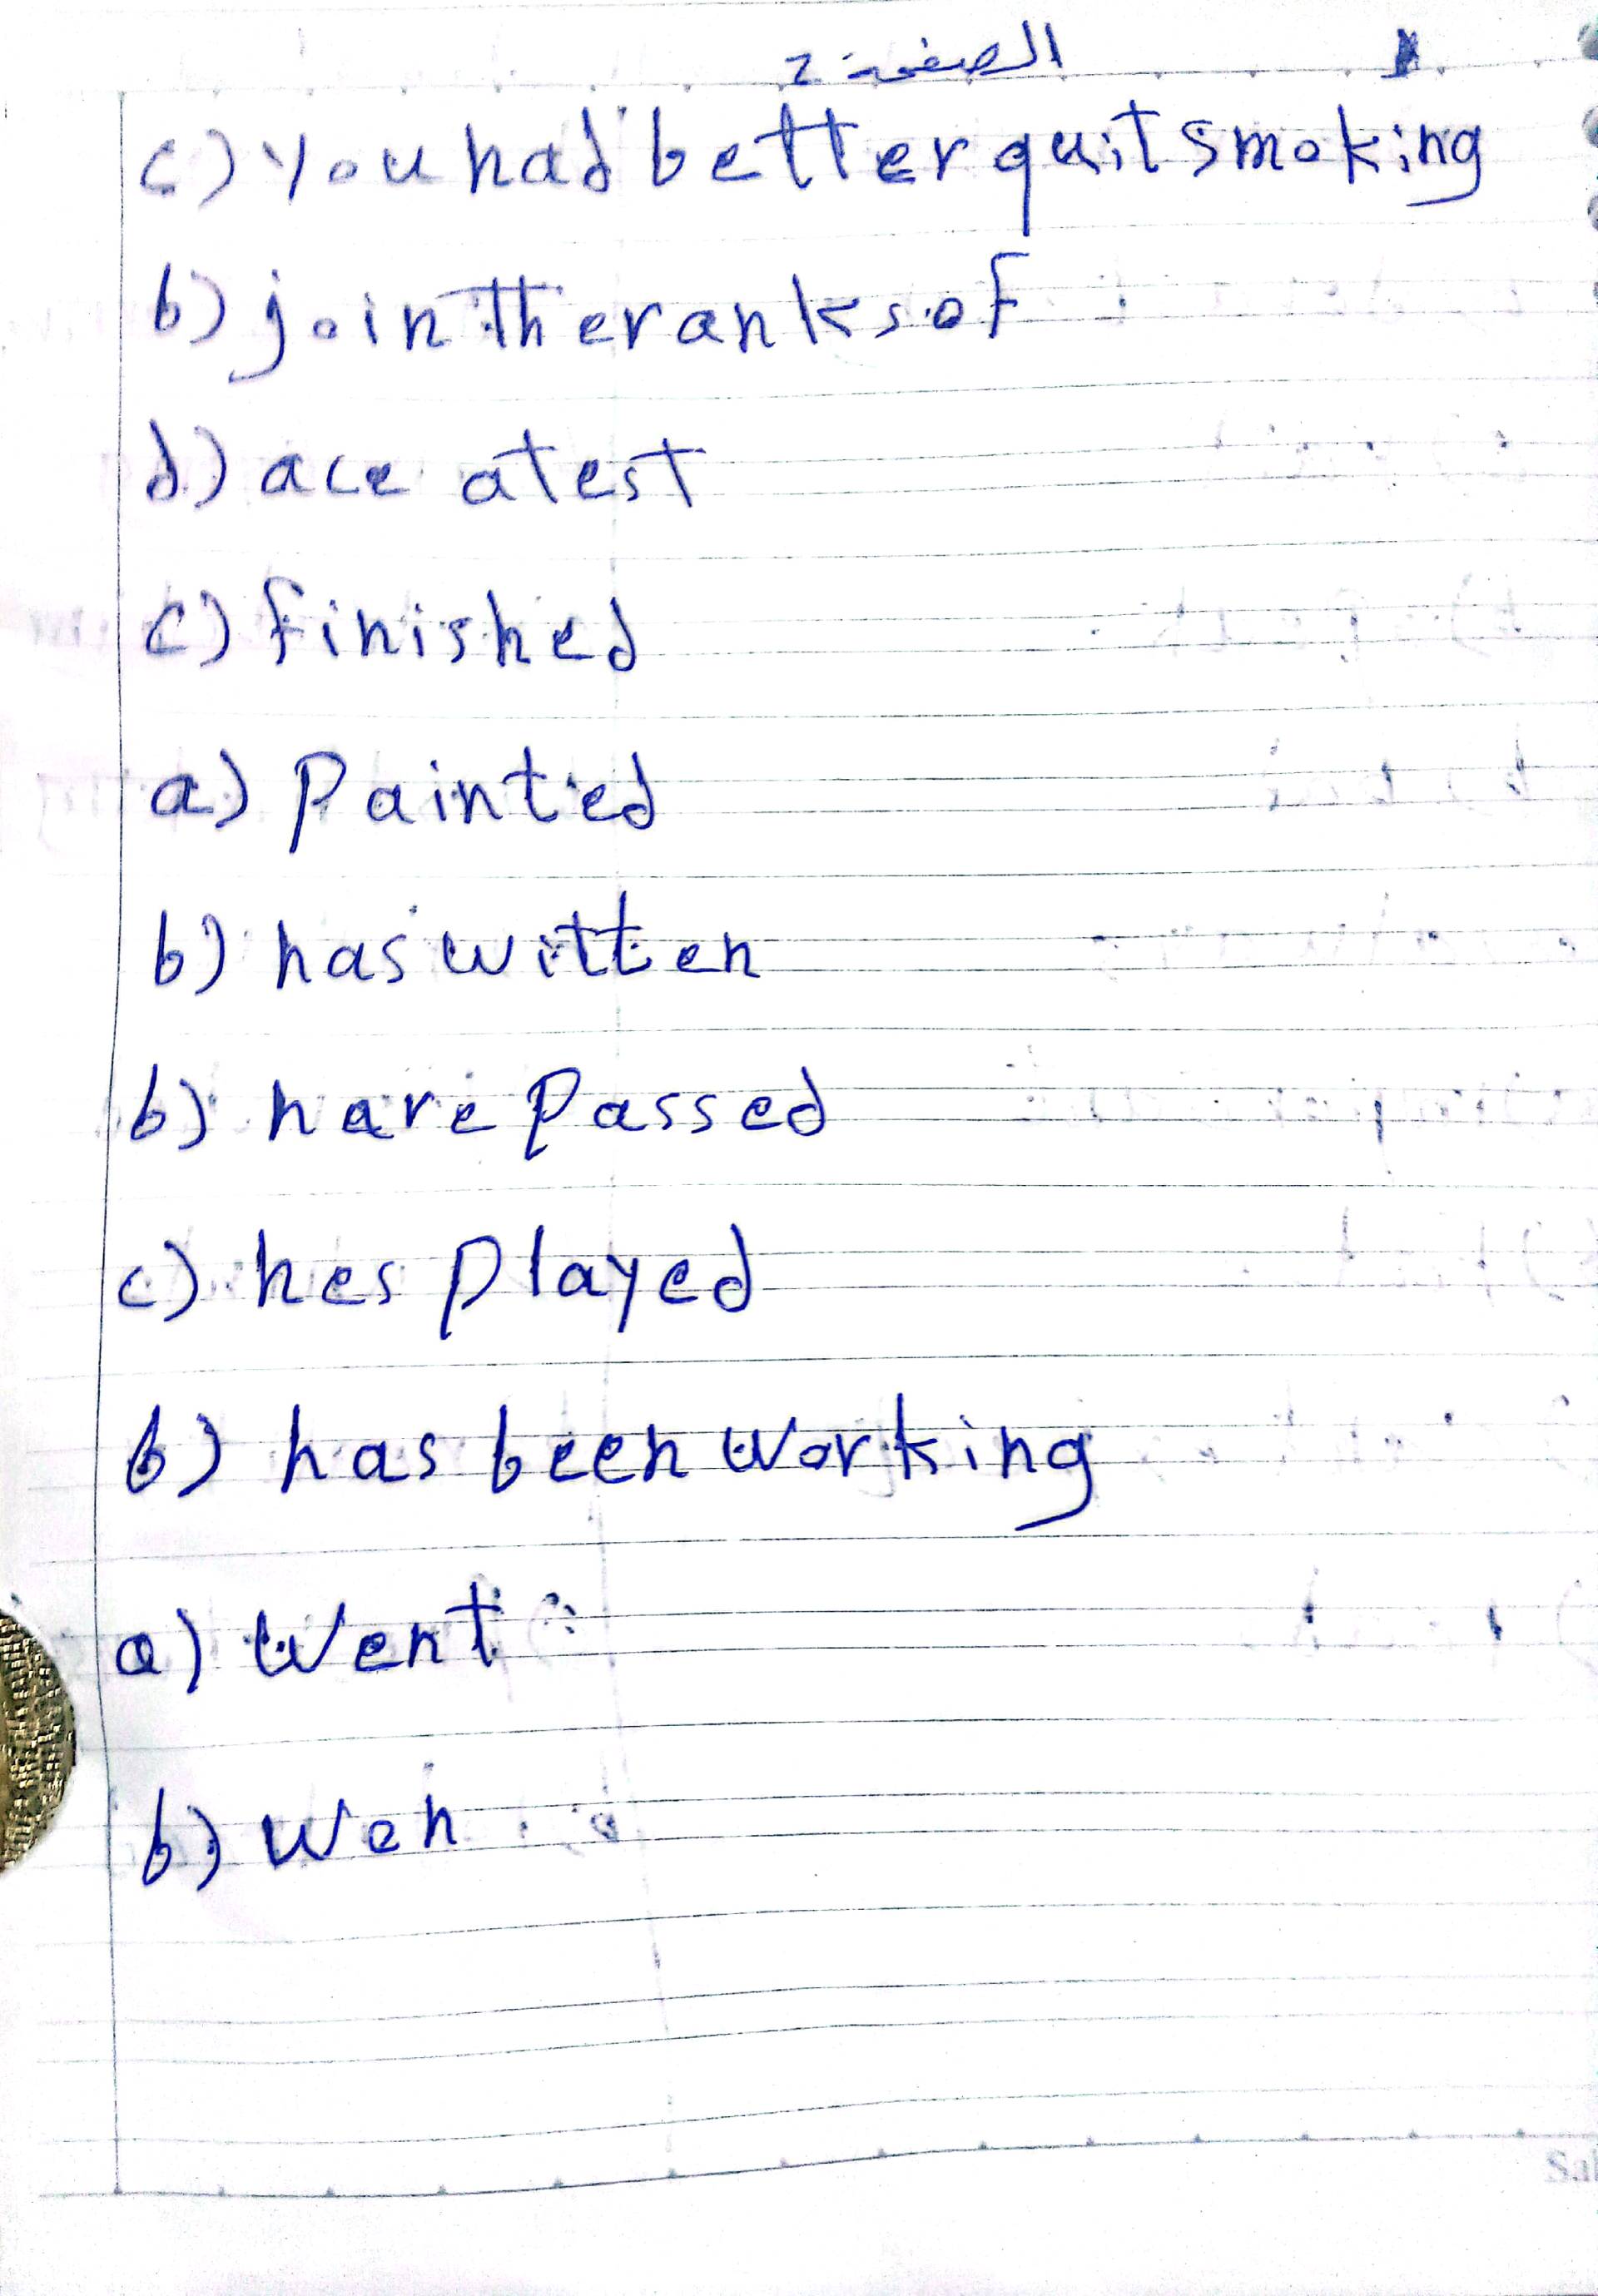 الصفحة 2
c) you had better quit smoking
b) join the ranks of
d) ace a test
c) finished
a) Painted
b) has witten
b) have Passed
c) hes played
b) has been working
a) Went
b) Weh